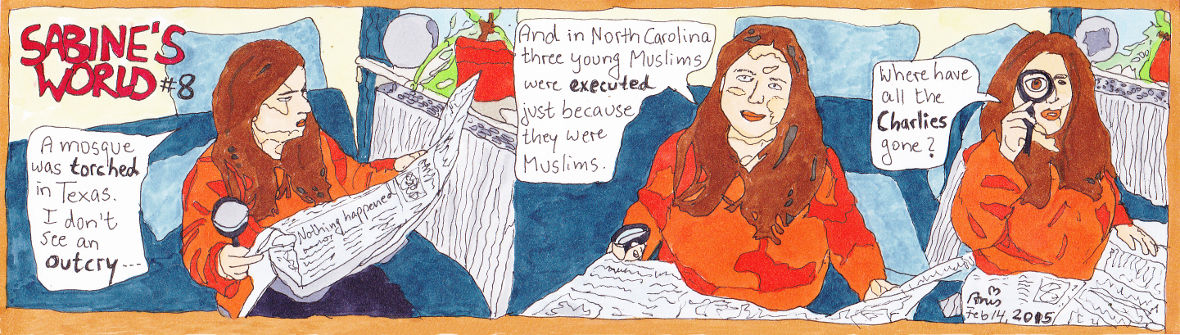 SABINE'S
WORLD #8
A mosque
was torched
in Texas.
I don't
see an
outcry....
Nothing happened!
And in North Carolina
three young Muslims
were executed
just because
they were
Muslims.
Where have
all the
Charlies
gone?
Feb 14, 2015